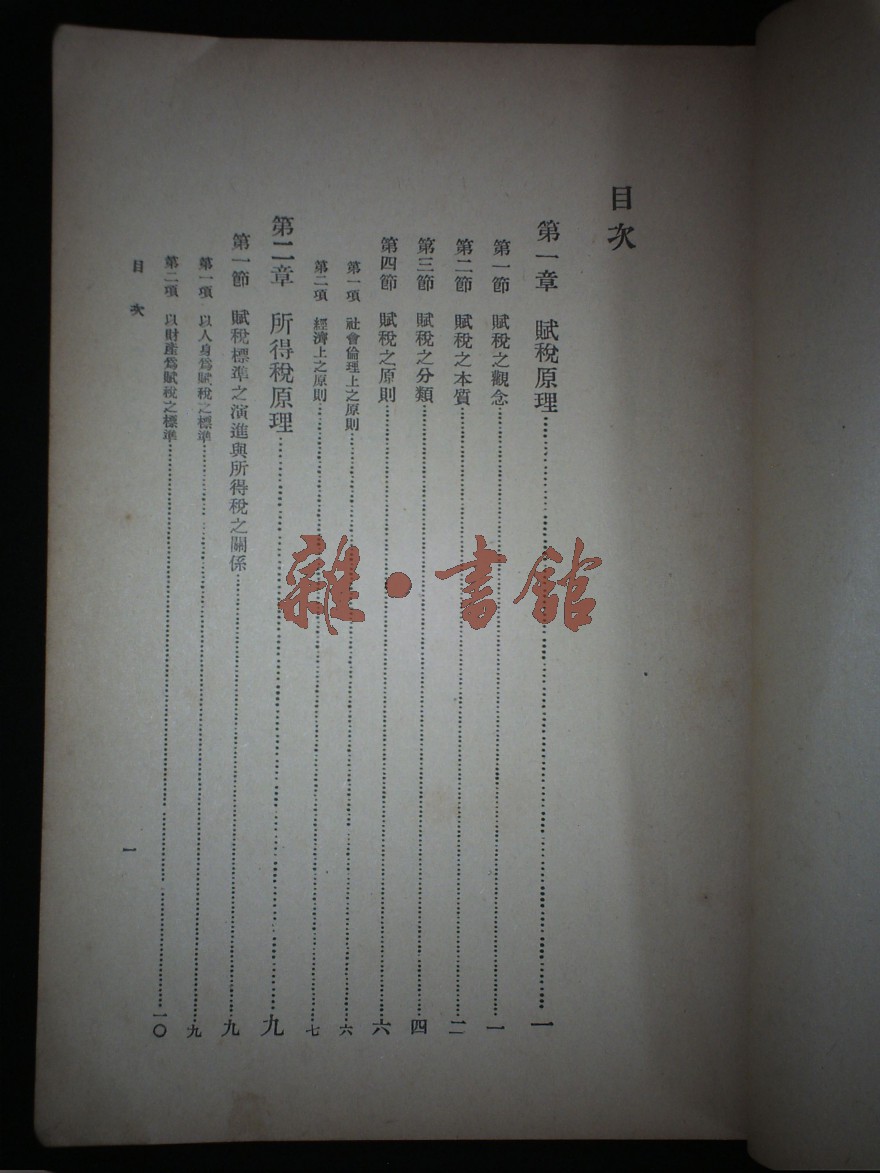 目次
第一章 賦稅原理 一
第一節 賦稅之觀念 一
第二節 賦稅之本質 二
第三節 賦稅之分類 四
第四節 賦稅之原則 六
第一項 社會倫理上之原則 六
第二項 經濟上之原則 七
第二章 所得稅原理 九
第一節 賦稅標準之演進與所得稅之關係 九
第一項 以人身爲賦稅之標準 九
第二項 以財產爲賦稅之標準 一〇
目次 一
雜·書館